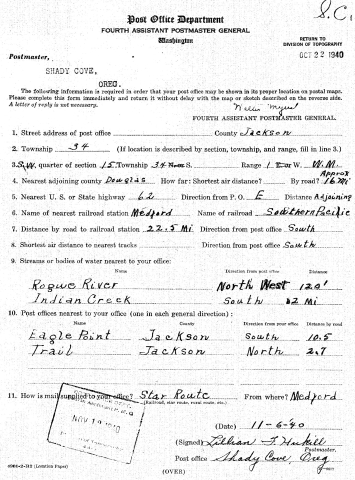 S.C.
Post Office Department
FOURTH ASSISTANT POSTMASTER GENERAL
Washington
RETURN TO
DIVISION OF TOPOGRAPHY
OCT 22 1940
Postmaster,
SHADY COVE,
OREG.
The following information is required in order that your post office may be shown in its proper location on postal maps.
Please complete this form immediately and return it without delay with the map or sketch described on the reverse side.
A letter of reply is not necessary.
FOURTH ASSISTANT POSTMASTER GENERAL.
1. Street address of post office County Jackson
2. Township 34 (If location is described by section, township, and range, fill in line 3.)
3. S.W. quarter of section 15 Township 34 S. Range 1 W. W.M.
Approx
4. Nearest adjoining county Douglas How far: Shortest air distance? By road? 16 Mi
5. Nearest U.S. or State highway 62 Direction from P.O. E Distance Adjoining
6. Name of nearest railroad station Medford Name of railroad Southern Pacific
7. Distance by road to railroad station 22.5 Mi Direction from your post office South
8. Shortest air distance to nearest tracks Direction from your office South
9. Streams or bodies of water nearest to your office:
Name Direction from your office Distance
Rogue River North West 120'
Indian Creek South .2 Mi
10. Post offices nearest to your office (one in each general direction):
Name County Direction from your office Distance by road
Eagle Point Jackson South 10.5
Trail Jackson North 2.7
11. How is mail supplied to your office? Star Route From where? Medford
(Railroad, star route, rural route, etc.)
NOV 19 1940
(Date) 11-6-40
(Signed) Lillian F. Hukill
Postmaster.
Post office Shady Cove, Oreg
(OVER)